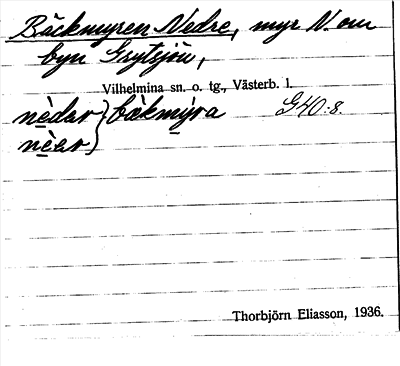 Bäckmyren Nedre, myr N. om
byn Grytsjön,
Vilhelmina sn. o. tg., Västerb. l.
nèdar } bàkmýra G40:8.
nèar }
Thorbjörn Eliasson, 1936.